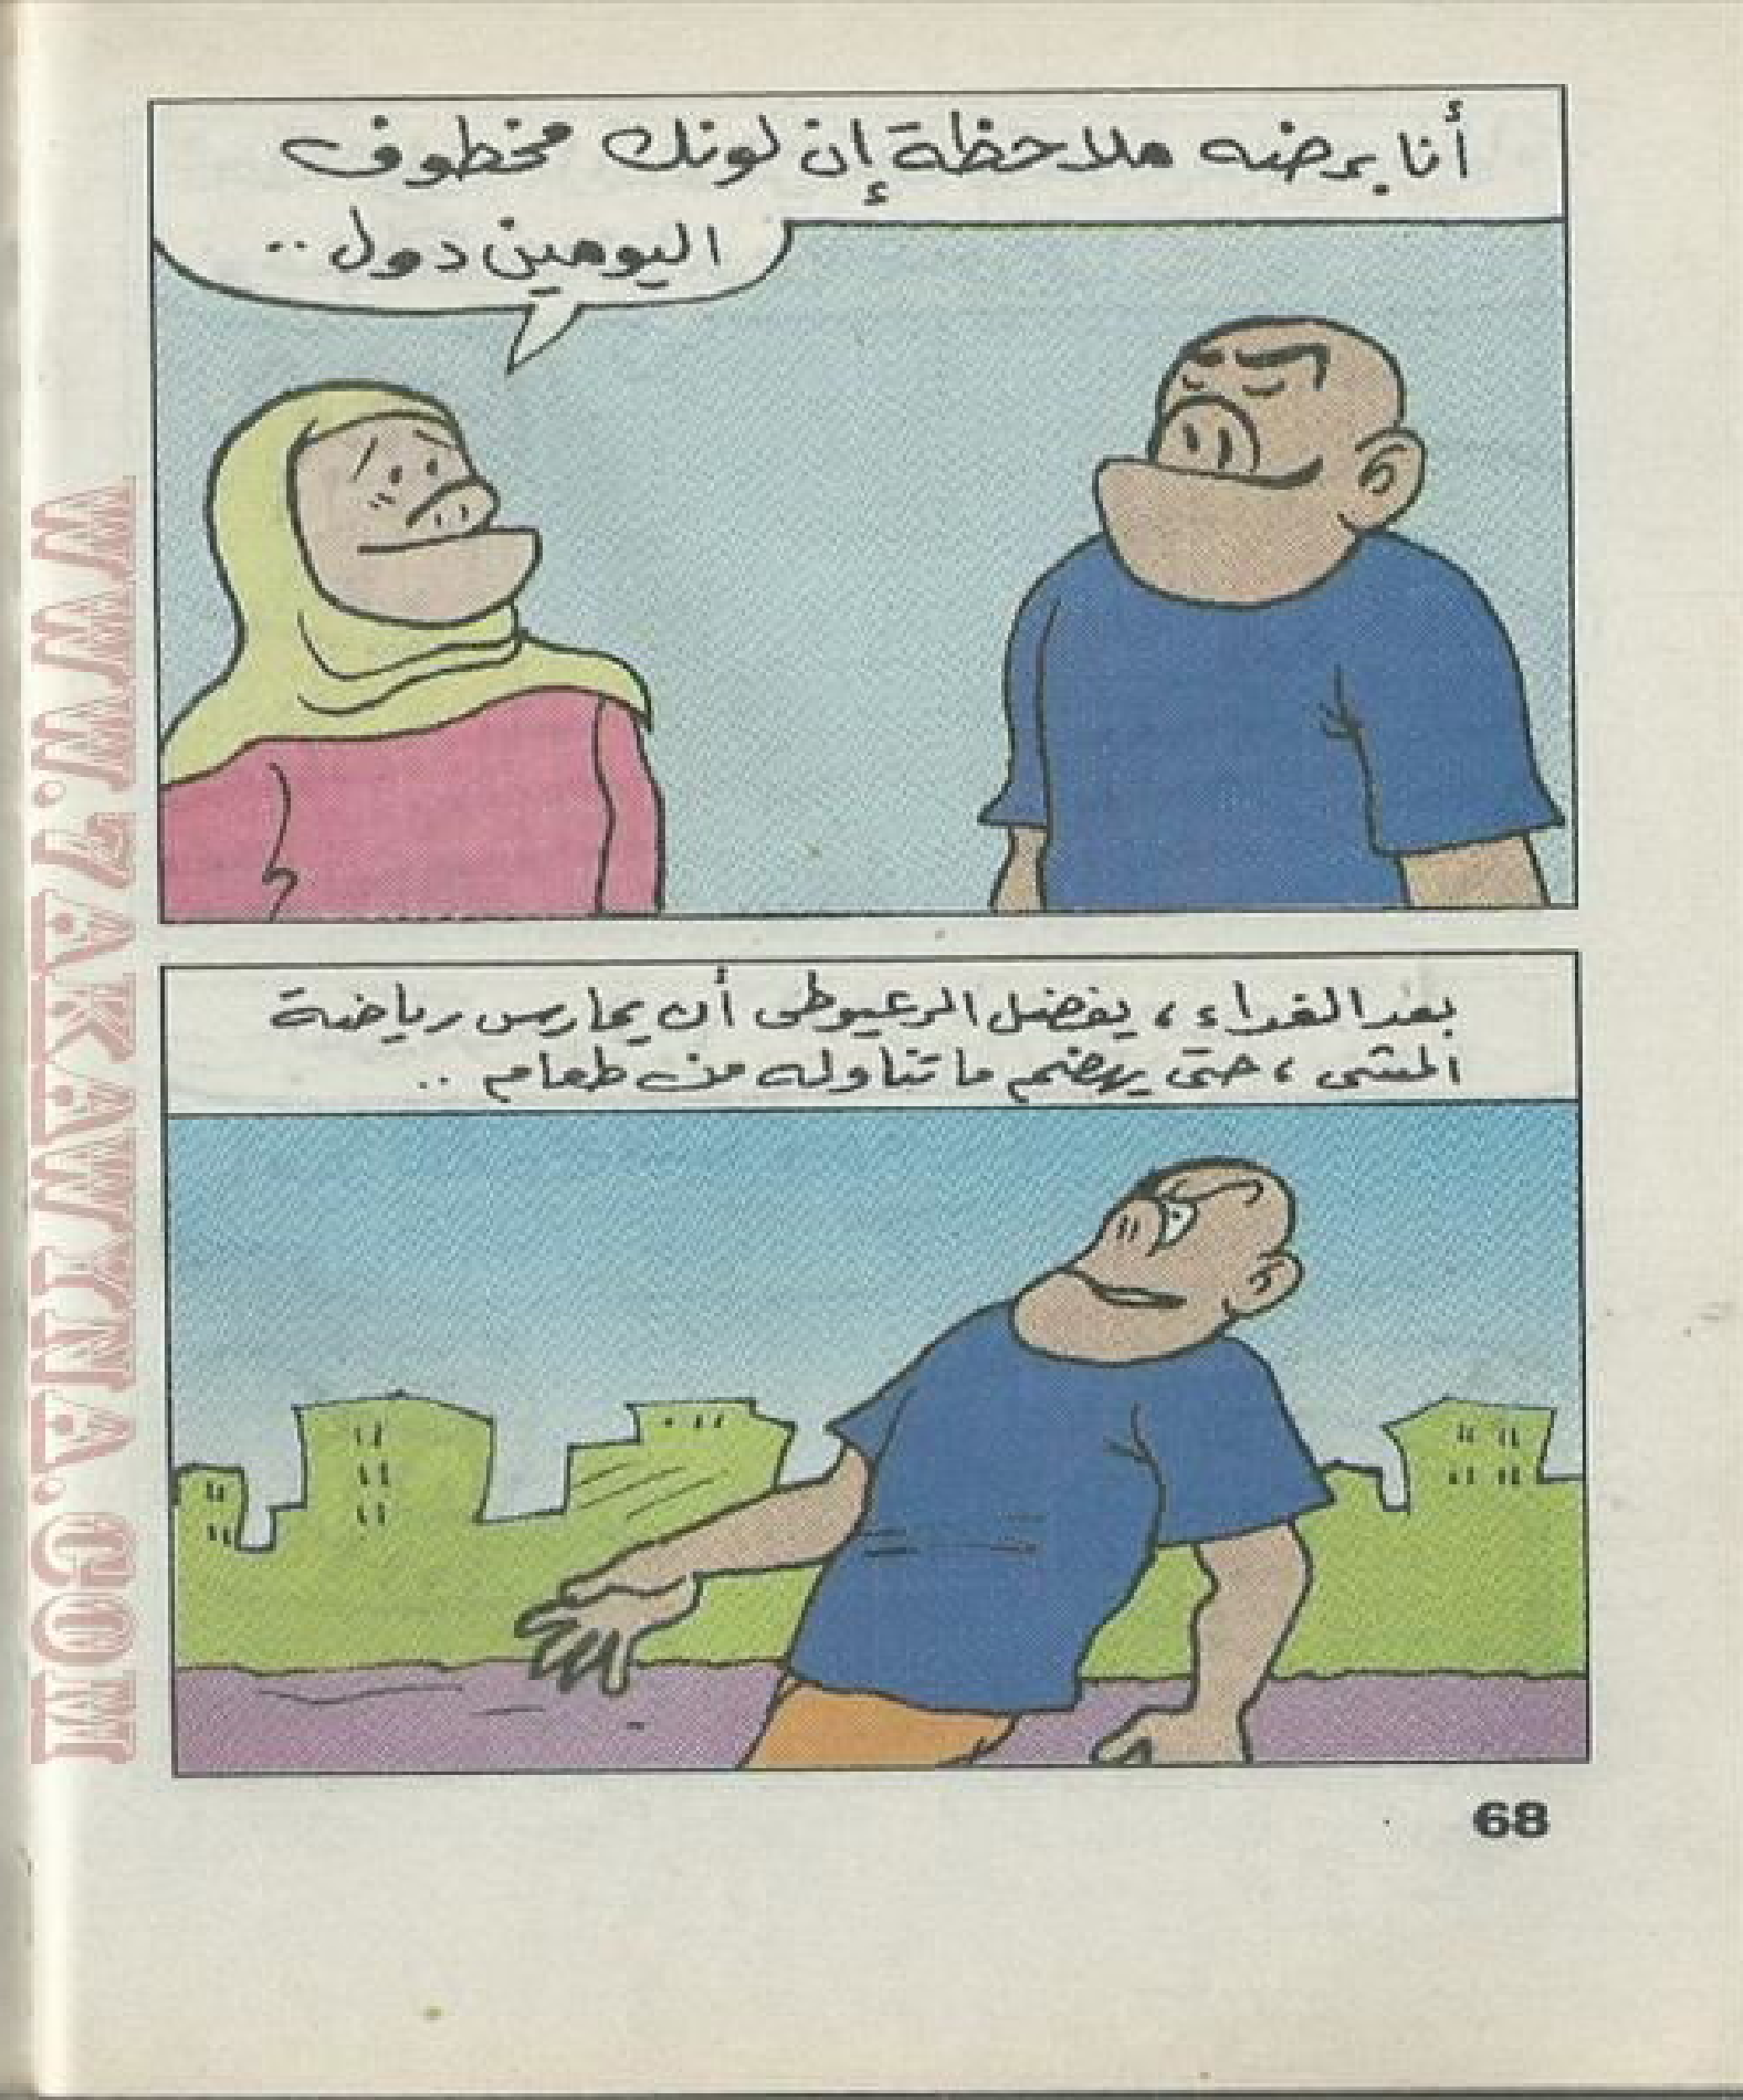 أنا برضه ملاحظة إن لونك مخطوف
اليومين دول ..
بعد الغداء، يفضل الزعيوطى أن يمارس رياضة
المشى، حتى يهضم ما تناوله من طعام ..
68
WWW.ZAKAWINA.COM